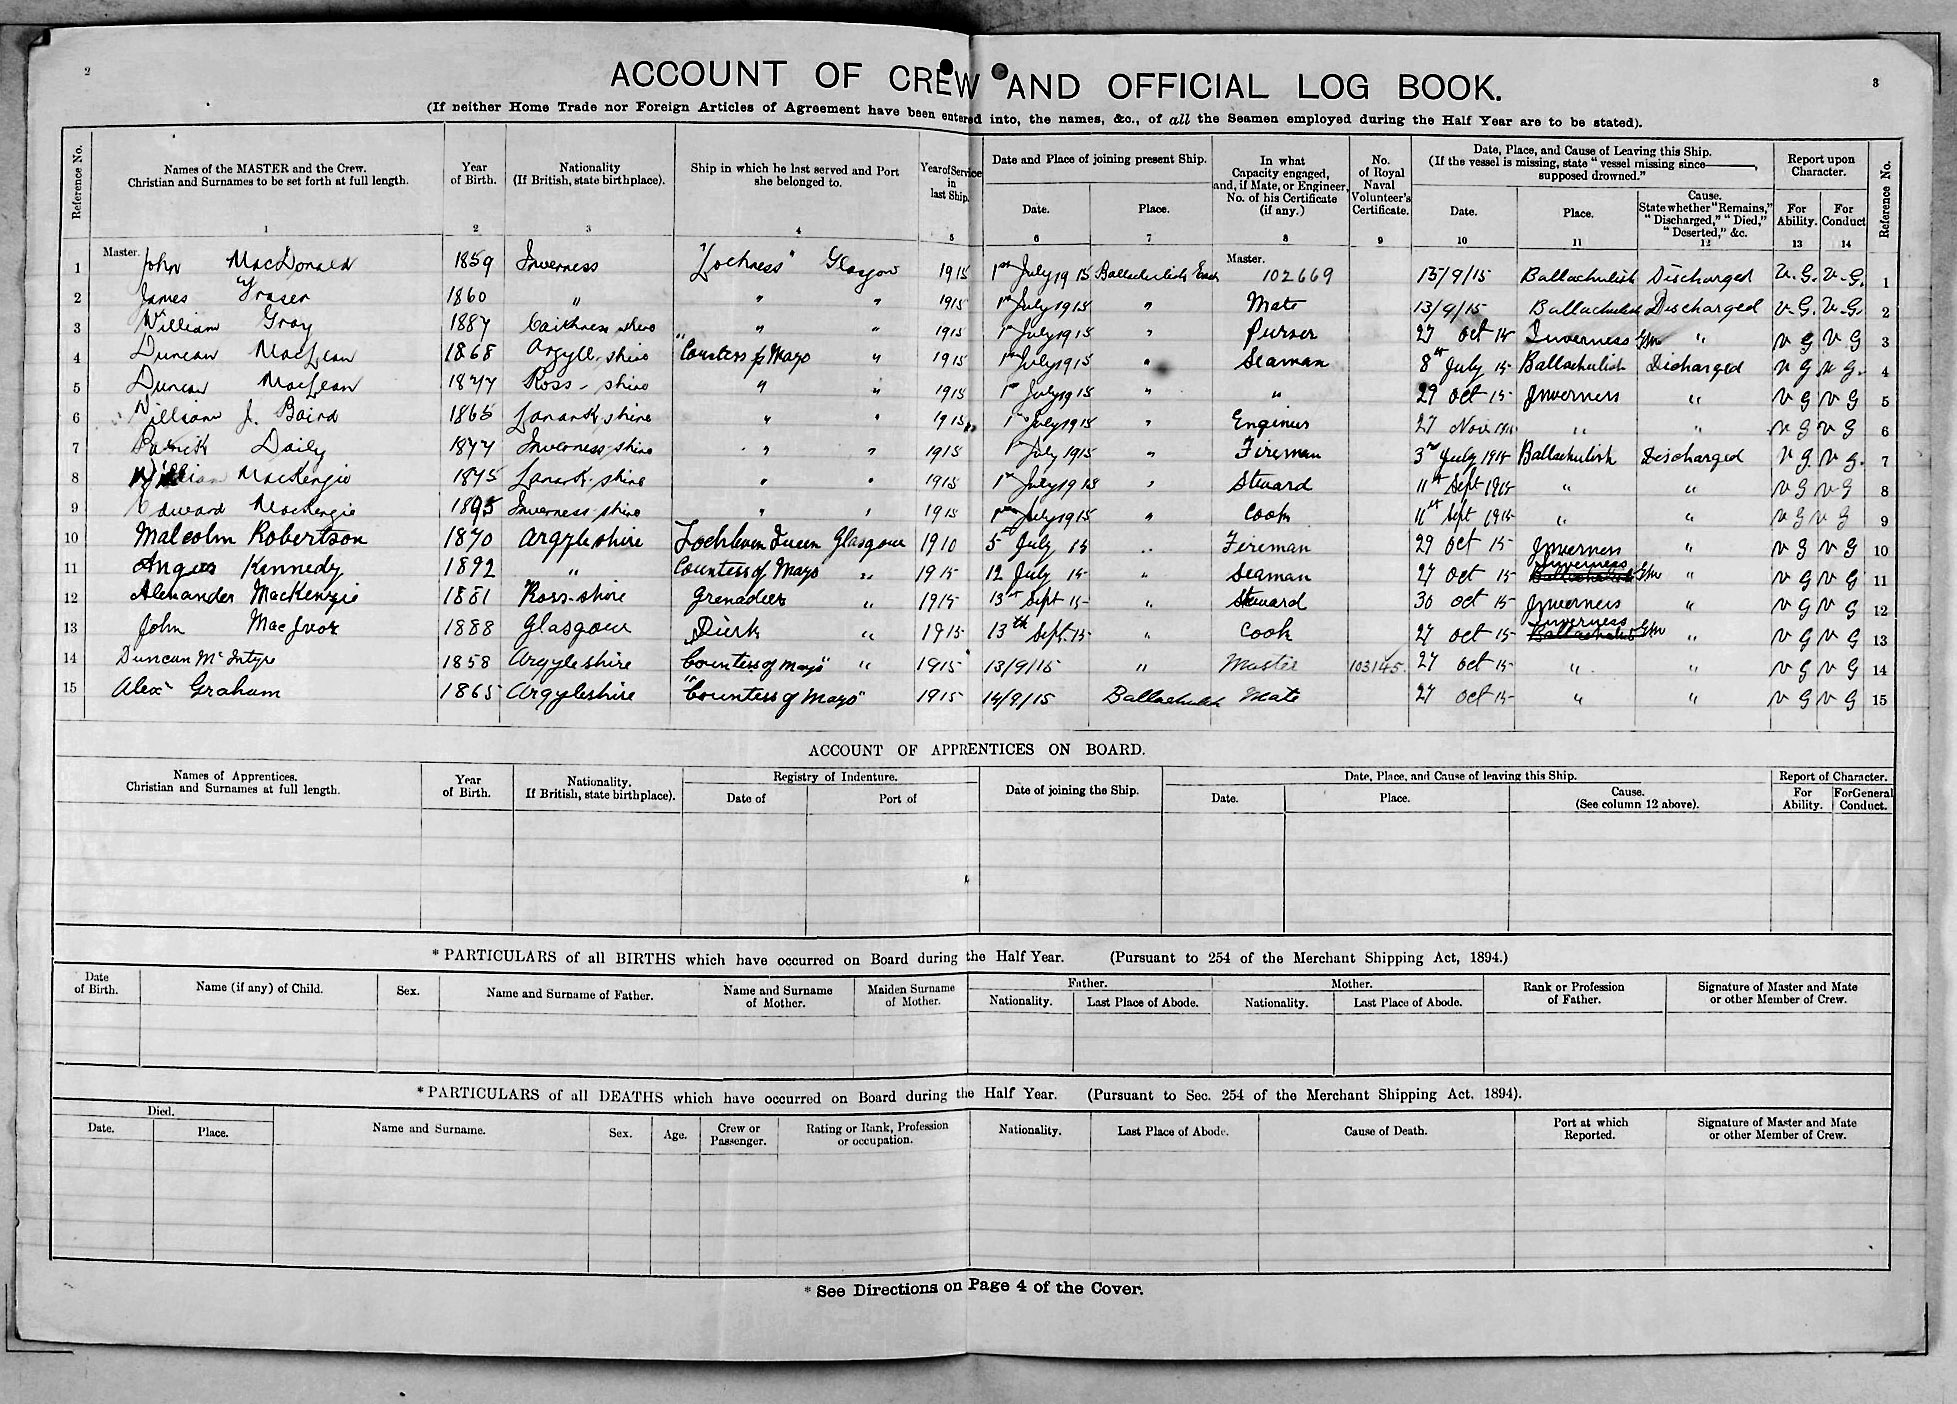 2
3
ACCOUNT OF CREW AND OFFICIAL LOG BOOK.
(If neither Home Trade nor Foreign Articles of Agreement have been entered into, the names, &c., of all the Seamen employed during the Half Year are to be stated).
Reference No. Names of the MASTER and the Crew. Christian and Surnames to be set forth at full length. Year of Birth. Nationality (If British, state birthplace). Ship in which he last served and Port she belonged to. Year of Service in last Ship. Date and Place of joining present Ship. Date. Place. In what Capacity engaged, and, if Mate, or Engineer, No. of his Certificate (if any.) No. of Royal Naval Volunteer's Certificate. Date, Place, and Cause of Leaving this Ship. (If the vessel is missing, state "vessel missing since ———, supposed drowned." Date. Place. Cause. State whether "Remains," "Discharged," "Died," "Deserted," &c. Report upon Character. For Ability. For Conduct Reference No.
1 2 3 4 5 6 7 8 9 10 11 12 13 14
1 Master. John MacDonald 1859 Inverness "Lochness" Glasgow 1915 1st July 1915 Ballachulish Master. 102669 13/9/15 Ballachulish Discharged V. G. V. G. 1
2 James Fraser 1860 " " " 1915 1st July 1915 " Mate 13/9/15 Ballachulish Discharged V. G. V. G. 2
3 William Gray 1887 Caithness shire " " 1915 1st July 1915 " Purser 27 Oct 15 Inverness GM " V G V G 3
4 Duncan MacLean 1868 Argyll, shire "Countess of Mayo " 1915 1st July 1915 " Seaman 8th July 15 Ballachulish Discharged V G V G. 4
5 Duncan MacLean 1877 Ross-shire " " 1915 1st July 1915 " " 29 Oct 15 Inverness " V G V G 5
6 William J. Baird 1865 Lanarkshire " " 1915 1st July 1915 " Engineer 27 Nov 1915 " " V G V G 6
7 Patrick Daily 1877 Inverness-shire " " 1915 1st July 1915 " Fireman 3rd July 1915 Ballachulish Discharged V G. V G. 7
8 William MacKenzie 1875 Lanark-shire " " 1915 1st July 1915 " Steward 11th Sept 1915 " " V G V G 8
9 Edward MacKenzie 1895 Inverness-shire " " 1915 1st July 1915 " Cook 11th Sept 1915 " " V G V G 9
10 Malcolm Robertson 1870 Argyleshire Lochleven Queen Glasgow 1910 5th July 15 " Fireman 29 Oct 15 Inverness " V G V G 10
11 Angus Kennedy 1892 " Countess of Mayo " 1915 12 July 15 " Seaman 27 Oct 15 Inverness Ballachulish GM " V G V G 11
12 Alexander MacKenzie 1881 Ross-shire Grenadier " 1915 13th Sept 15 " Steward 30 Oct 15 Inverness " V G V G 12
13 John MacIvor 1888 Glasgow " 1915 13th Sept. 15 " Cook 27 Oct 15 Inverness Ballachulish GM " V G V G 13
14 Duncan McIntyre 1858 Argyleshire "Countess of Mayo" " 1915 13/9/15 " Master 103145. 27 Oct 15 " " V G V G 14
15 Alexr Graham 1865 Argyleshire "Countess of Mayo" 1915 14/9/15 Ballachulish Mate 27 Oct 15 " " V G V G 15
ACCOUNT OF APPRENTICES ON BOARD.
Names of Apprentices. Christian and Surnames at full length. Year of Birth. Nationality. If British, state birthplace). Registry of Indenture. Date of Port of Date of joining the Ship. Date, Place, and Cause of leaving this Ship. Date. Place. Cause. (See column 12 above). Report of Character. For Ability. For General Conduct.
* PARTICULARS of all BIRTHS which have occurred on Board during the Half Year. (Pursuant to 254 of the Merchant Shipping Act, 1894.)
Date of Birth. Name (if any) of Child. Sex. Name and Surname of Father. Name and Surname of Mother. Maiden Surname of Mother. Father. Nationality. Last Place of Abode. Mother. Nationality. Last Place of Abode. Rank or Profession of Father. Signature of Master and Mate or other Member of Crew.
* PARTICULARS of all DEATHS which have occurred on Board during the Half Year. (Pursuant to Sec. 254 of the Merchant Shipping Act, 1894).
Died. Date. Place. Name and Surname. Sex. Age. Crew or Passenger. Rating or Rank, Profession or occupation. Nationality. Last Place of Abode. Cause of Death. Port at which Reported. Signature of Master and Mate or other Member of Crew.
* See Directions on Page 4 of the Cover.